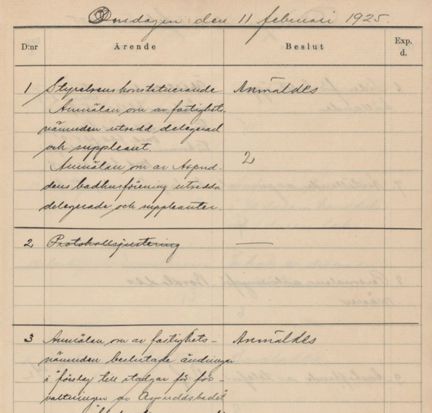 Onsdagen den 11 februari 1925.
D:nr Ärende Beslut Exp. d.
1 Styrelsens konstituerande Anmäldes
Anmälan om av fastighets-
nämnden utsedd delegerad
och suppleant. 2
Anmälan om av Aspud-
dens badhusförening utsedda
delegerade och suppleanter
2 Protokollsjustering —
3 Anmälan om av fastighets- Anmäldes
nämnden beslutade ändringar
i förslag till stadgar för för-
valtningen av Aspuddsbadet